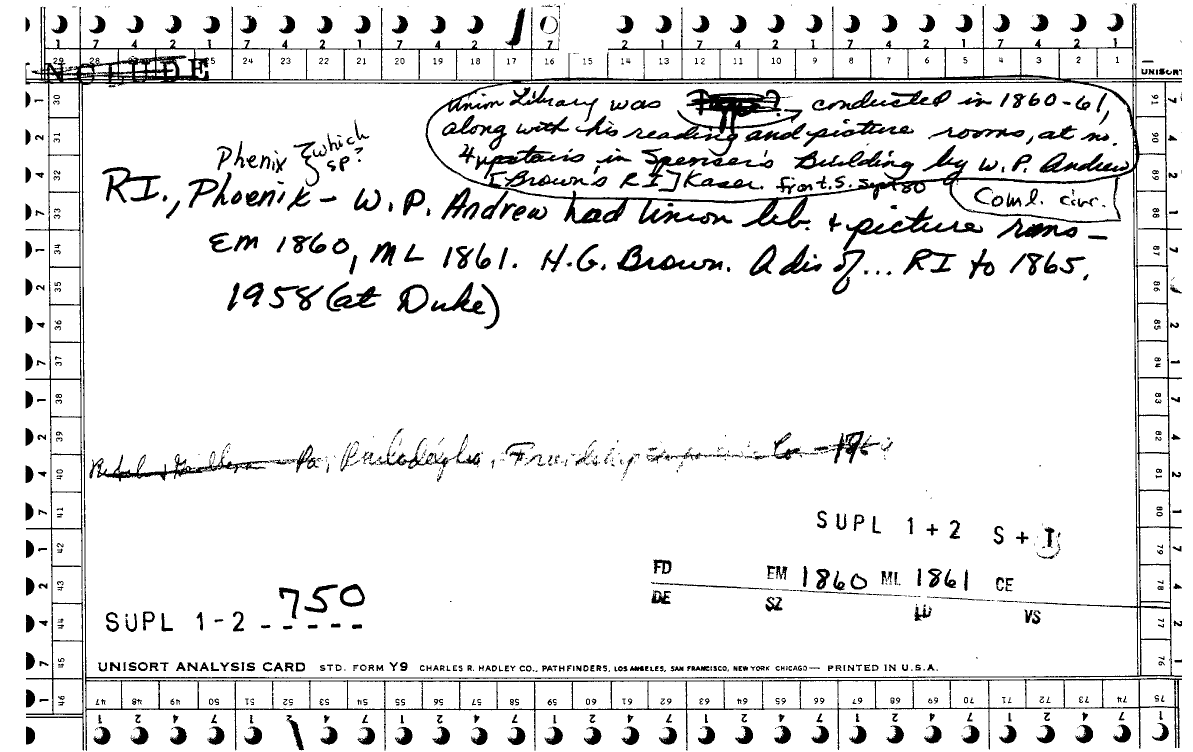 7 4 2 1 7 4 2 1 7 4 2 1 7 2 1 7 4 2 1 7 4 2 1
29 28 25 24 23 22 21 20 19 18 17 16 15 14 13 12 11 10 9 8 7 6 5 4 3 2 1
UNISORT
Union Library was conducted in 1860-61,
along with his reading and picture rooms, at no.
4 upstairs in Spenser's Building by W. P. Andrew
[Brown's RI] Kaser. front. S. Sept 80
Coml. circ.
Phenix } which
sp?
RI., Phoenix - W. P. Andrew had Union lib. + picture rms -
EM 1860, ML 1861. H.G. Brown. A dis of... RI to 1865.
1958 (at Duke)
Pa, Philadelphia, Friendship Co
SUPL 1+2 S + I
FD EM 1860 ML 1861 CE
DE SZ LD VS
SUPL 1-2 750
UNISORT ANALYSIS CARD STD. FORM Y9 CHARLES R. HADLEY CO., PATHFINDERS, LOS ANGELES, SAN FRANCISCO, NEW YORK CHICAGO — PRINTED IN U.S.A.
30 31 32 33 34 35 36 37 38 39 40 41 42 43 44 45 46
91 90 89 88 87 86 85 84 83 82 81 80 79 78 77 76
47 48 49 50 51 52 53 54 55 56 57 58 59 60 61 62 63 64 65 66 67 68 69 70 71 72 73 74 75